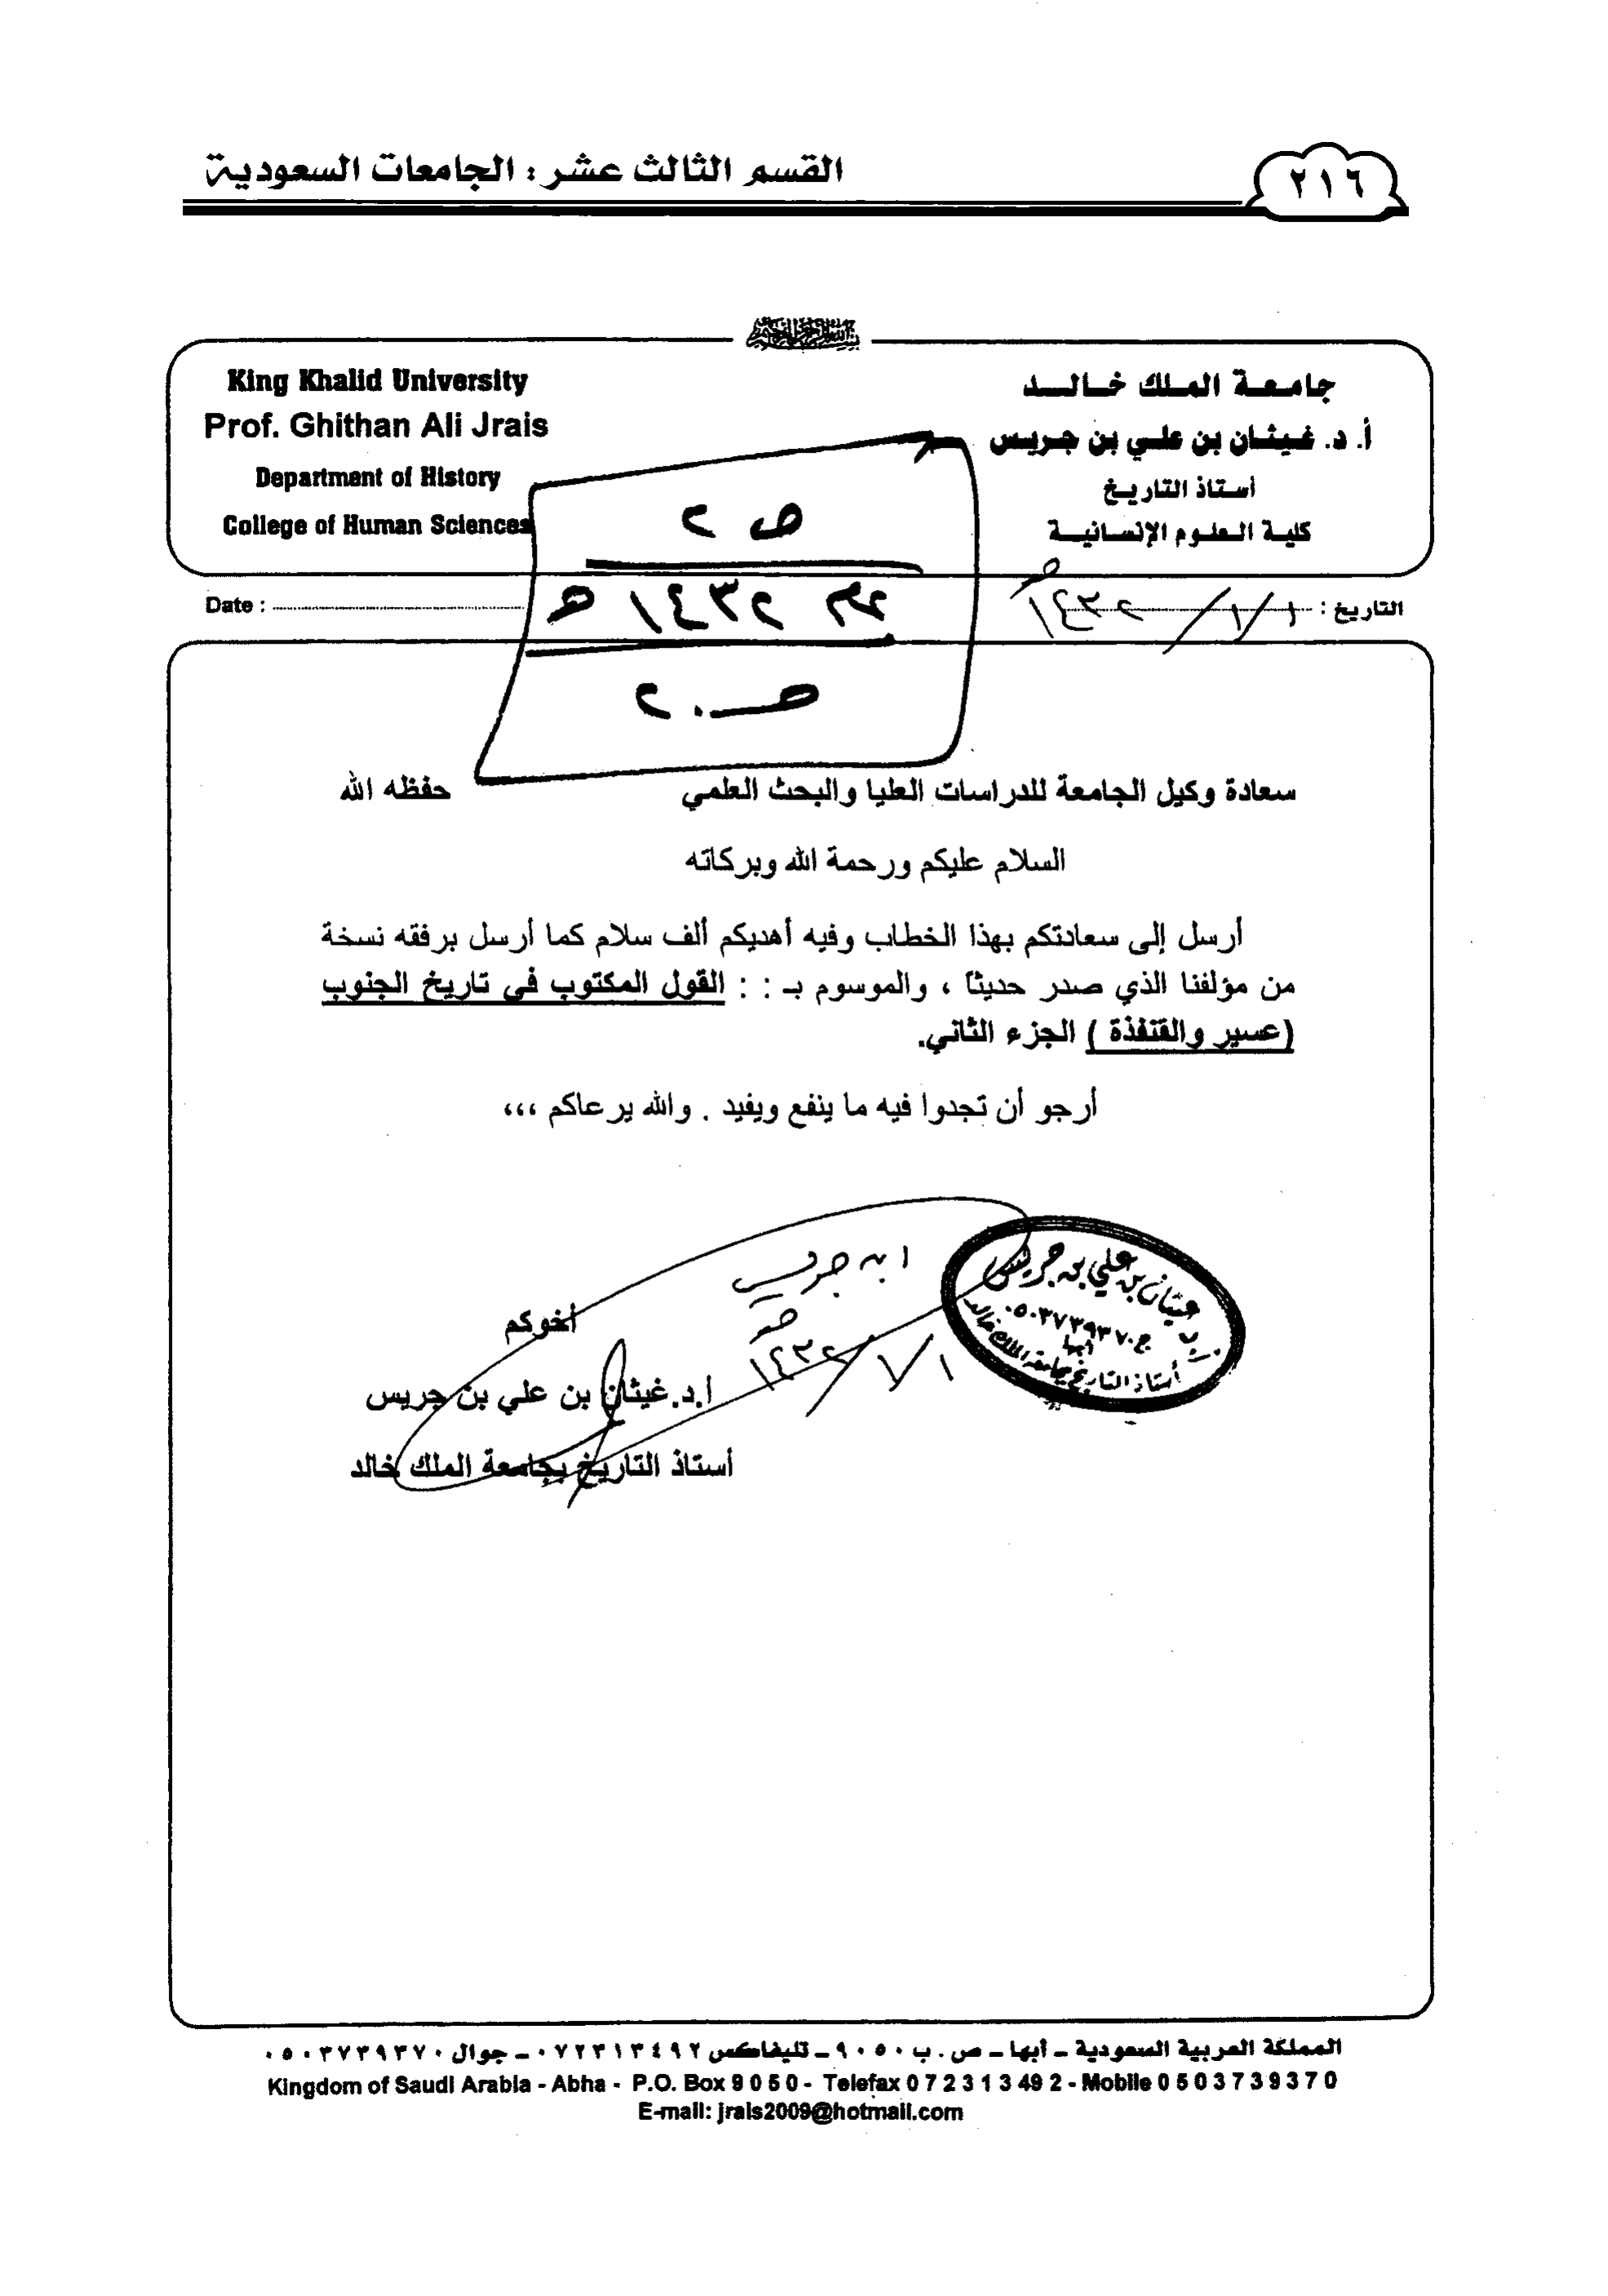 القسم الثالث عشر : الجامعات السعودية
٢١٦
جامعة الملك خالد
أ. د. غيثان بن علي بن جريس
أستاذ التاريخ
كلية العلوم الإنسانية
King Khalid University
Prof. Ghithan Ali Jrais
Department of History
College of Human Sciences
ص ٢
١٤٣٢ هـ
ص ٢٠
التاريخ : ١/١/١٤٣٢هـ
Date :
سعادة وكيل الجامعة للدراسات العليا والبحث العلمي حفظه الله
السلام عليكم ورحمة الله وبركاته
أرسل إلى سعادتكم بهذا الخطاب وفيه أهديكم ألف سلام كما أرسل برفقه نسخة
من مؤلفنا الذي صدر حديثاً ، والموسوم بـ : : القول المكتوب في تاريخ الجنوب
(عسير والقنفذة ) الجزء الثاني.
أرجو أن تجدوا فيه ما ينفع ويفيد . والله يرعاكم ،،،
أخوكم
أ.د.غيثان بن علي بن جريس
أستاذ التاريخ بجامعة الملك خالد
ابن جريس
١/١/١٤٣٢هـ
أ.د. غيثان بن علي بن جريس
ج ٠٥٠٣٧٣٩٣٧٠
أبها
أستاذ التاريخ بجامعة الملك خالد
المملكة العربية السعودية – أبها – ص . ب ٩٠٥٠ – تليفاكس ٠٧٢٣١٣٤٩٢ – جوال ٠٥٠٣٧٣٩٣٧٠
Kingdom of Saudi Arabia - Abha - P.O. Box 9 0 5 0 - Telefax 0 7 2 3 1 3 49 2 - Mobile 0 5 0 3 7 3 9 3 7 0
E-mail: jrais2009@hotmail.com